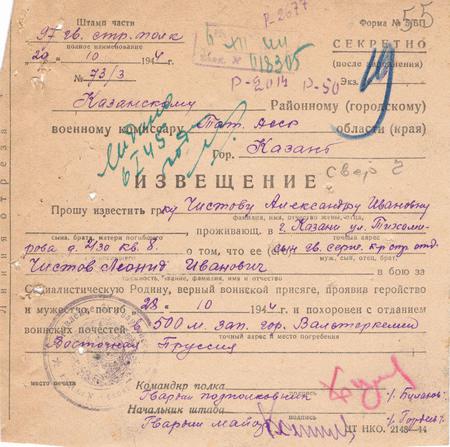 Штамп части
97 гв. стр. полк
полное наименование
29 10 1944 г.
№ 73/3
Р-2677
118305
Р-2014 Р-50
Форма № 4/БП
55
СЕКРЕТНО
(после заполнения)
Экз.
Казанскому Районному (городскому)
военному комиссару Тат. Асср области (края)
Гор. Казань
ИЗВЕЩЕНИЕ
Прошу известить гр-ку Чистову Александру Ивановну
фамилия, имя, отчество жены, отца,
сына, брата, матери погибшего проживающ. в г. Казани ул. Тихоми-
точный адрес
рова д. 4/30 кв. 8. о том, что ее (его) сын гв. серж. к-р отд.
муж, сын, отец, брат
Чистов Леонид Иванович в бою за
должность, звание, фамилия, имя и отчество
Социалистическую Родину, верный воинской присяге, проявив геройство
и мужество, погиб 28 10 1944 г и похоронен с отданием
воинских почестей 500 м. зап. гор. Валтеркемен
точный адрес и место погребения
Восточная Пруссия
место печати
Командир полка
Гвардии подполковник
подпись
Начальник штаба
Гвардии майор
подпись
ЦТ НКО. 2148—44
Линия отреза